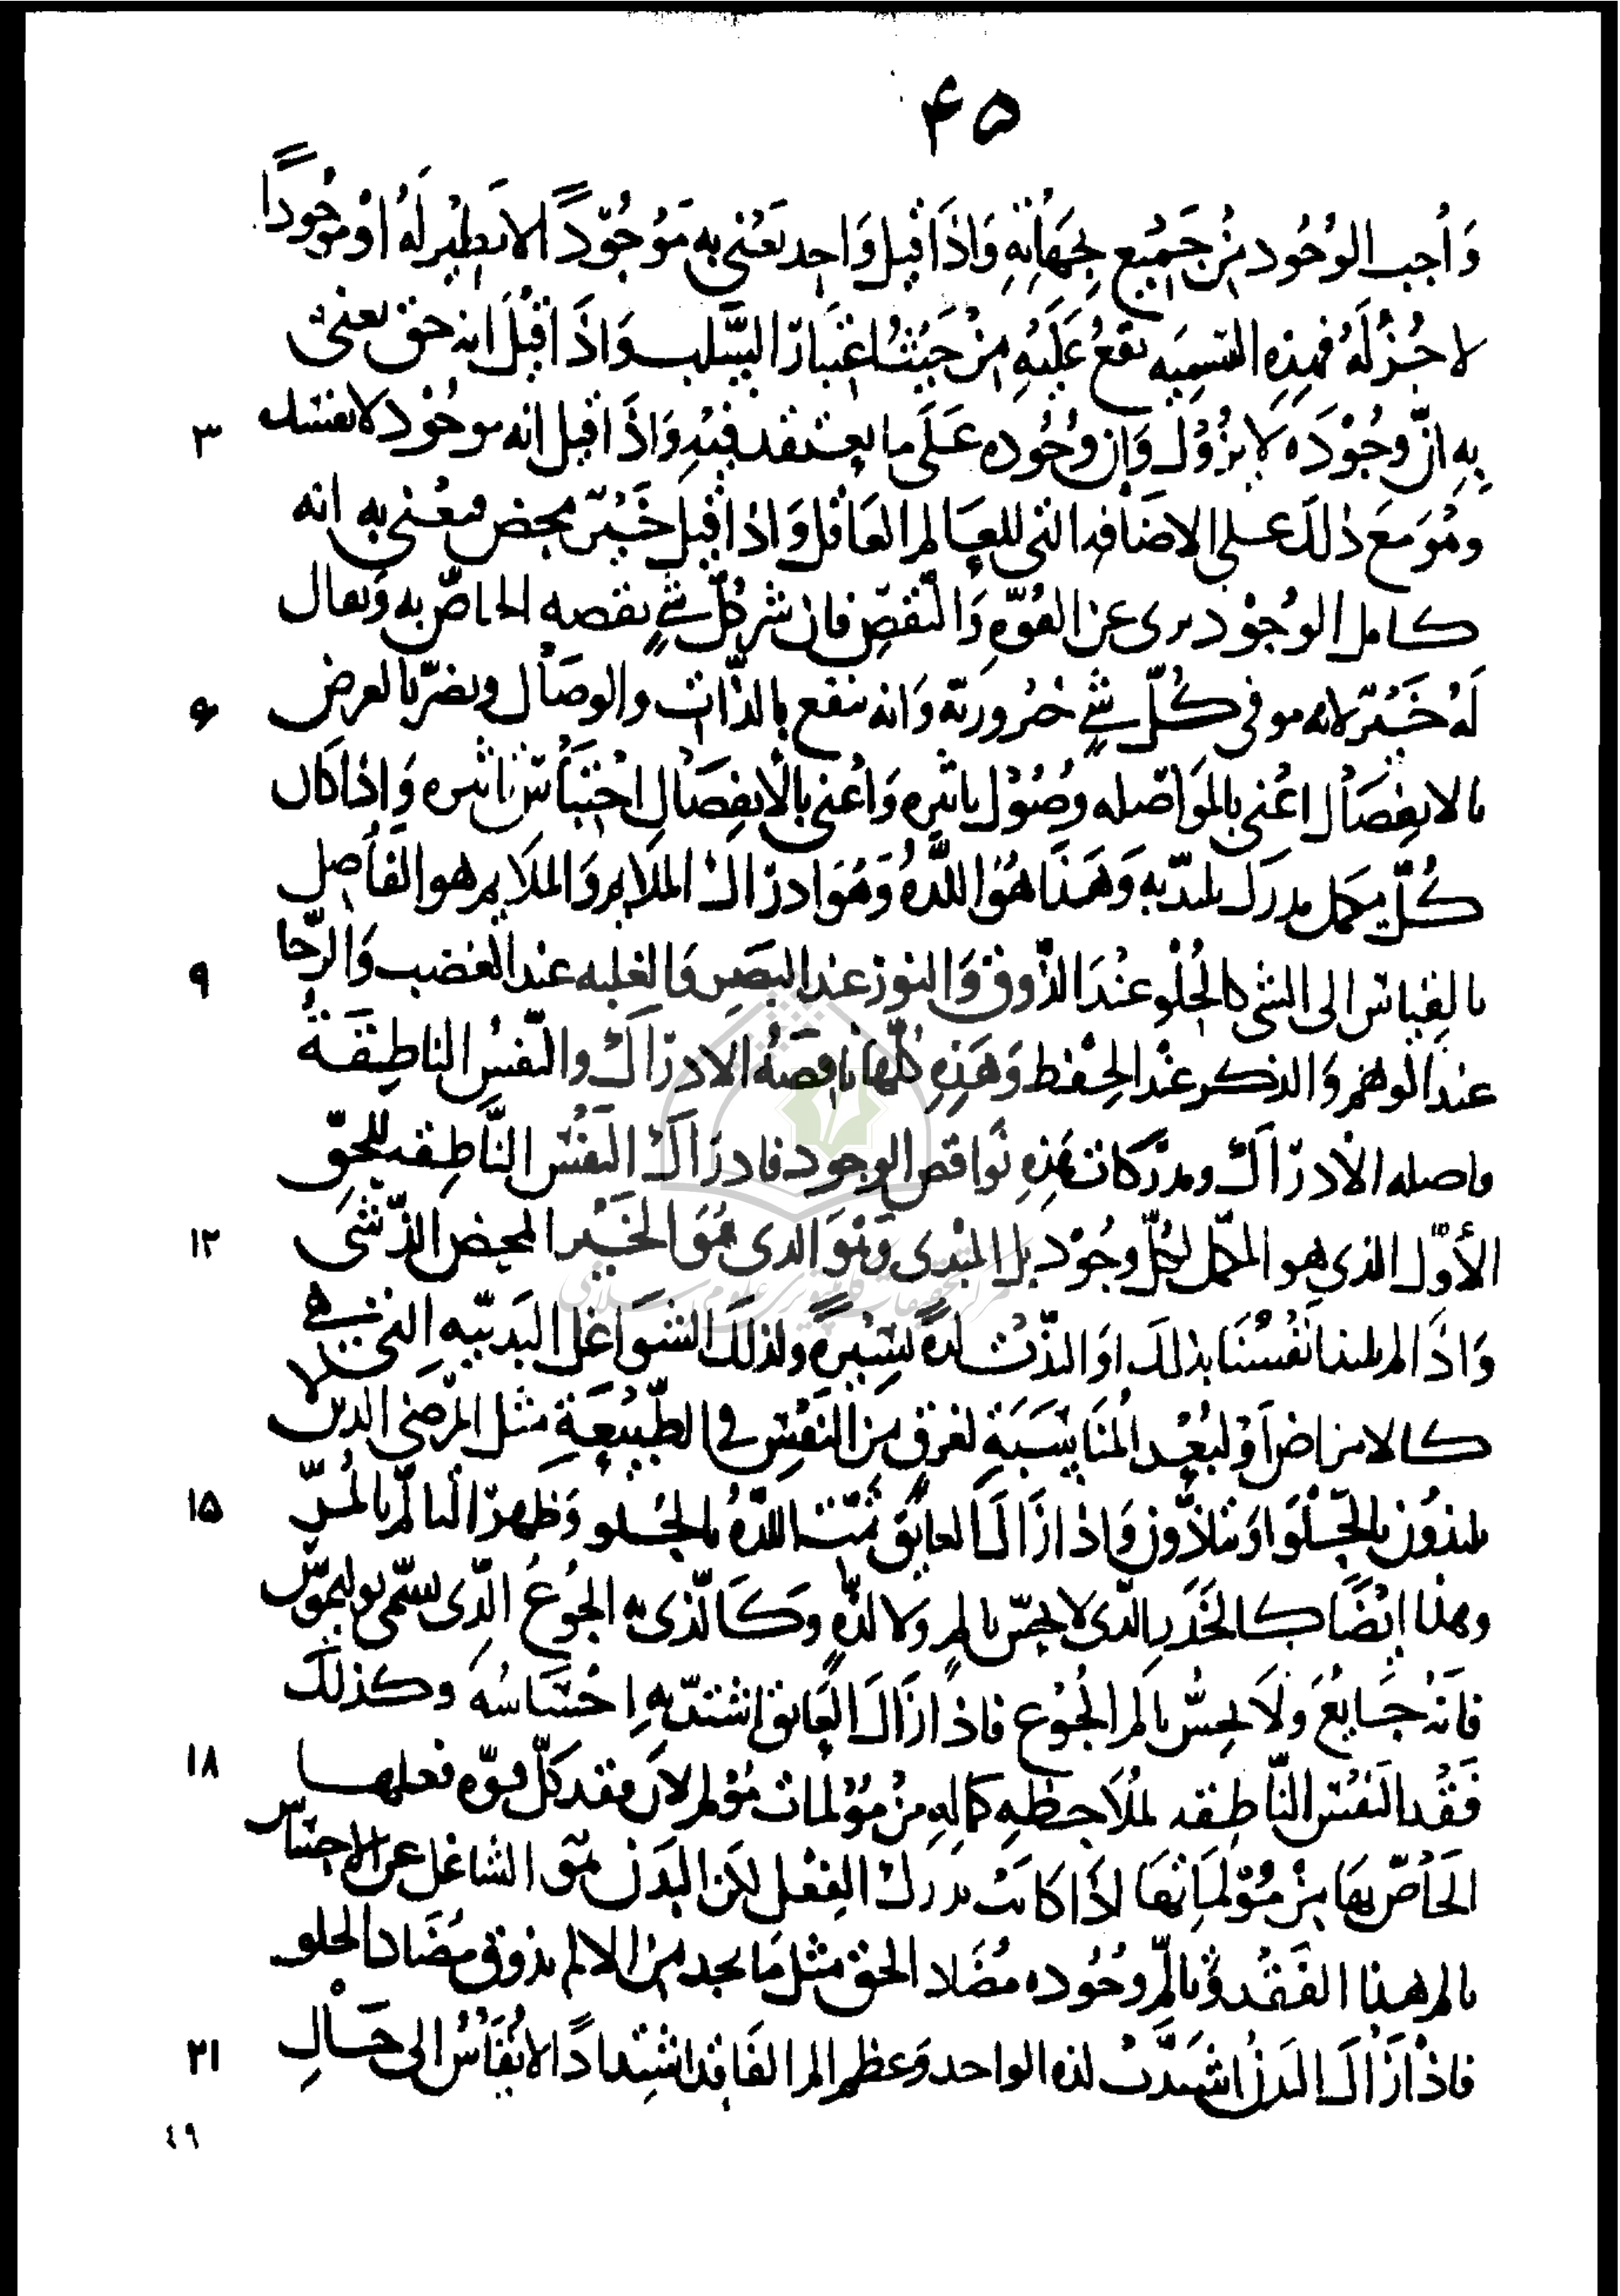 ۴۵
وَاجب الوُجُود مِنْ جَمِيع جِهَاتِهِ وَاِذَا قيل وَاحِد نَعْنى به مَوْجُوداً لا نظير لَهُ اوْ موجُوداً
لا جُزْ لَهُ فهذِهِ التسمِيه تَقَعُ عَلَيْهِ مِنْ حَيْثُ اعْتبار السَّلب وَاذَا قيْلَ انه حق يعنى
بِهِ انّ وجُوْدَه لا يزُوْل وَان وجُوده عَلَى ما يعتقد فيْهِ وَاذَا قيل انه موجُوْد لا نفسك
وهُوَ مَعَ ذلكَ على الاضَافه التى للعَالم العَاقل وَاذا قيل خَيْر محض فيعْنى به انه
كامل الوجُوْد برى عن القوّه وَالنّقص فان شر كُلّ شىٍ نقصه الخاصّ به وَيقال
لَهُ خَيْر لانه موفى كُلّ شىٍ ضُرُوريّه وَانه ينفع بالذَّات والوصَال ويضرّ بالعرض
بالانفِصَال اعْنى بالمَوَاصله وصُوْل تاثيره وَاعْنى بالانفِصَال احْتبَاسَ تاثيره وَاذا كان
كُلّ مكمل مدرَك يلتذّ به وَهَذَا هُوَ اللّذهُ وَهُوَ ادرَاك الملايم وَالملايم هو الفاصل
بالقِيَاس الى الشى كالحُلْو عنْدَ الذّوق وَالنور عند البَصَرِ وَالغلبه عند الغضب وَالرّجا
عندَ الوهْم وَالذكر عنْد الحِفْظ وَهَذِهِ كُلّهَا ناقصَةُ الادرَاك والنّفسُ الناطِقَةُ
فاصله الادرَاك ومدْرَكات هَذِهِ نَوَاقص الوجود فادرَاك النفْسِ النَّاطِقه للحقّ
الأوّل الذى هو المكمل لكُلّ وجُوْد بل المبْتدى وَهُوَ الذى هُوَ الخَيْر المحض الذّ شى
وَاذَا لم يلتذ انفُسُنا بذلكَ اوَ التذّتْ لذةً يسيْرةً ولذلكَ الشوَاغل البَدنيّه التى هى
كالامرَاض اَوْ لبُعْد المُنَاسَبَةِ لغرق من النَفْسِ فى الطَّبيْعَةِ مثل المرْضى الذين لا
يلتذّون بالحُلْو اوَ يتلذّون وَاذا زَالَ العايق تمّت اللّذهُ بالحُلو وَظهرَ التالّم بالمُرّ
وهذا ايْضَا كالخَدر الّذى لا يحسّ بالم وَلا لذّه وكَالّذى به الجُوعُ الّذى يسمّى بوليموس
فانهُ جَايِعَ وَلَا يحسُّ بالم الجُوْع فاذا زَالَ العَايق اشتدّ به احْسَاسُهُ وكذلكَ
فَقْد النَفْس النّاطِقه لمُلاحظِه كمالِهِ مِنْ مُوْلمات مُوْلم لان فقد كلّ قوّه فعلها
الخاصّ بهَا مِنْ مُوْلمَاتِهَا اذَا كانَتْ مدرَك الفِعْل لكن البَدَن هُوَ الشاغل عن الاحسَاس
بالم هذا الفَقْد وَبالم وجُوده مضَاد الحق مثل مَا يجد من الالم بذوق مضَاد الحلو
فاذا زَالَ البدن اشتدّتْ لذه الواحد وَعظم الم الفَاقد اشتِدَادًا لا يُقَاسُ الى حَالِ
۳
۶
۹
۱۲
۱۵
۱۸
۲۱
٤٩
مرکز تحقیقات کامپیوتری علوم اسلامی